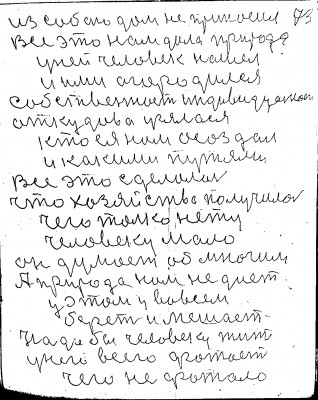 из собою дом не приносил 73
все это нам дала природа
у ней человек нашел
и ими огородился
собственност индивидуал
откудова узялася
кто ея нам создал
и какими путями
все это сделалос
что хозяйства получилос
чего толко нету
человеку мало
он думает об многим
А природа нам не дает
у этом у вовсем
берет и мешает
Надо бы человеку жит
у него всего хватает
чего не хватало